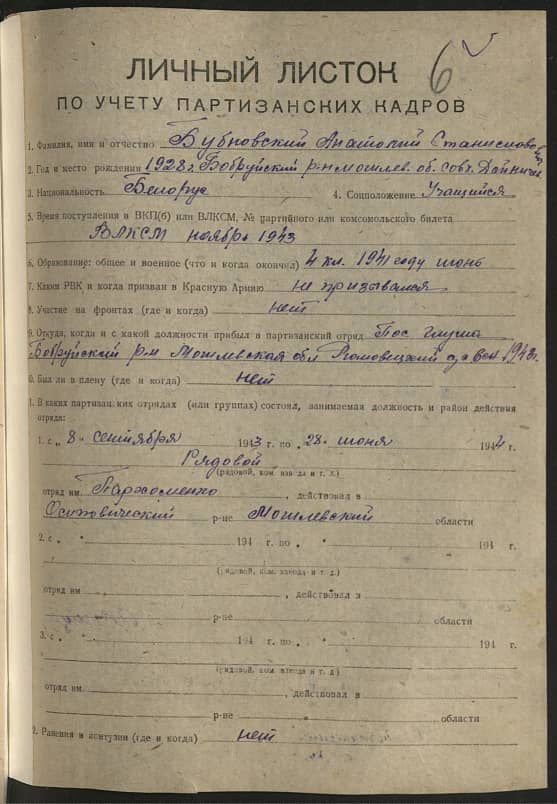 6
ЛИЧНЫЙ ЛИСТОК
ПО УЧЕТУ ПАРТИЗАНСКИХ КАДРОВ
1. Фамилия, имя и отчество Бубновский Анатолий Станиславович
2. Год и место рождения 1928 г. Бобруйский р-н могилев. об. совх.
3. Национальность Белорус 4. Соцположение Учащийся
5. Время поступления в ВКП(б) или ВЛКСМ, № партийного или комсомольского билета
ВЛКСМ ноябрь 1943
6. Образование: общее и военное (что и когда окончил) 4 кл. 1941 году июнь
7. Каким РВК и когда призван в Красную Армию не призывался
8. Участие на фронтах (где и когда) нет
9. Откуда, когда и с какой должности прибыл в партизанский отряд Пос глуша
Бобруйский р-н Могилевская обл 1943 г.
0. Был ли в плену (где и когда) нет
1. В каких партизанских отрядах (или группах) состоял, занимаемая должность и район действия
отряда:
1. с „ 8 „ сентября 1943 г. по „ 28 „ июня 1944 г.
Рядовой
(рядовой, ком. взвода и т. д.)
отряд им. Пархоменко, действовал в
Осиповический р-не Могилевский области
2. с „ „ 194 г. по „ „ 194 г.
(рядовой, ком. взвода и т. д.)
отряд им , действовал в
р-не области
3. с „ „ 194 г. по „ „ 194 г.
(рядовой, ком. взвода и т. д.)
отряд им. , действовал в
р-не области
2. Ранения и контузии (где и когда) нет